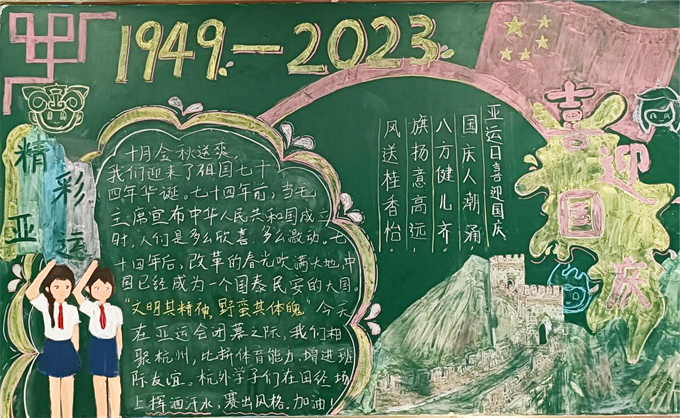 1949—2023
精彩
亚运
十月金秋送爽,
我们迎来了祖国七十
四年华诞。七十四年前,当毛
主席宣布中华人民共和国成立
时,人们是多么欣喜,多么激动。七
十四年后,改革的春光吹满大地,中
国已经成为一个国泰民安的大国。
“文明其精神,野蛮其体魄”今天
在亚运会闭幕之际,我们相
聚杭州,比拼体育能力,增进班
际友谊。杭外学子们在田径场
上挥洒汗水,赛出风格。加油!
亚运日喜迎国庆
国庆人潮涌,
八方健儿齐。
旗扬意高远,
风送桂香怡。
喜迎
国庆